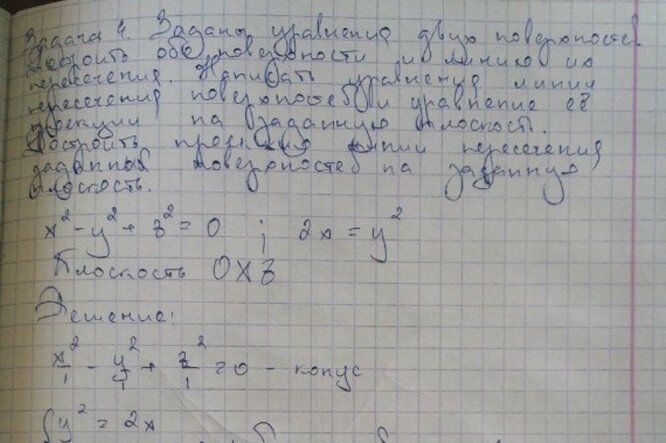 Задача 4. Заданы уравнения двух поверхностей.
Построить обе поверхности и линию их
пересечения. Написать уравнения линии
пересечения поверхностей и уравнение её
проекции на заданную плоскость.
Построить проекцию линии пересечения
заданных поверхностей на заданную
плоскость.
x² - y² + z² = 0 ; 2x = y²
Плоскость OXZ
Решение:
x²/1 - y²/1 + z²/1 = 0 - конус
{ y² = 2x